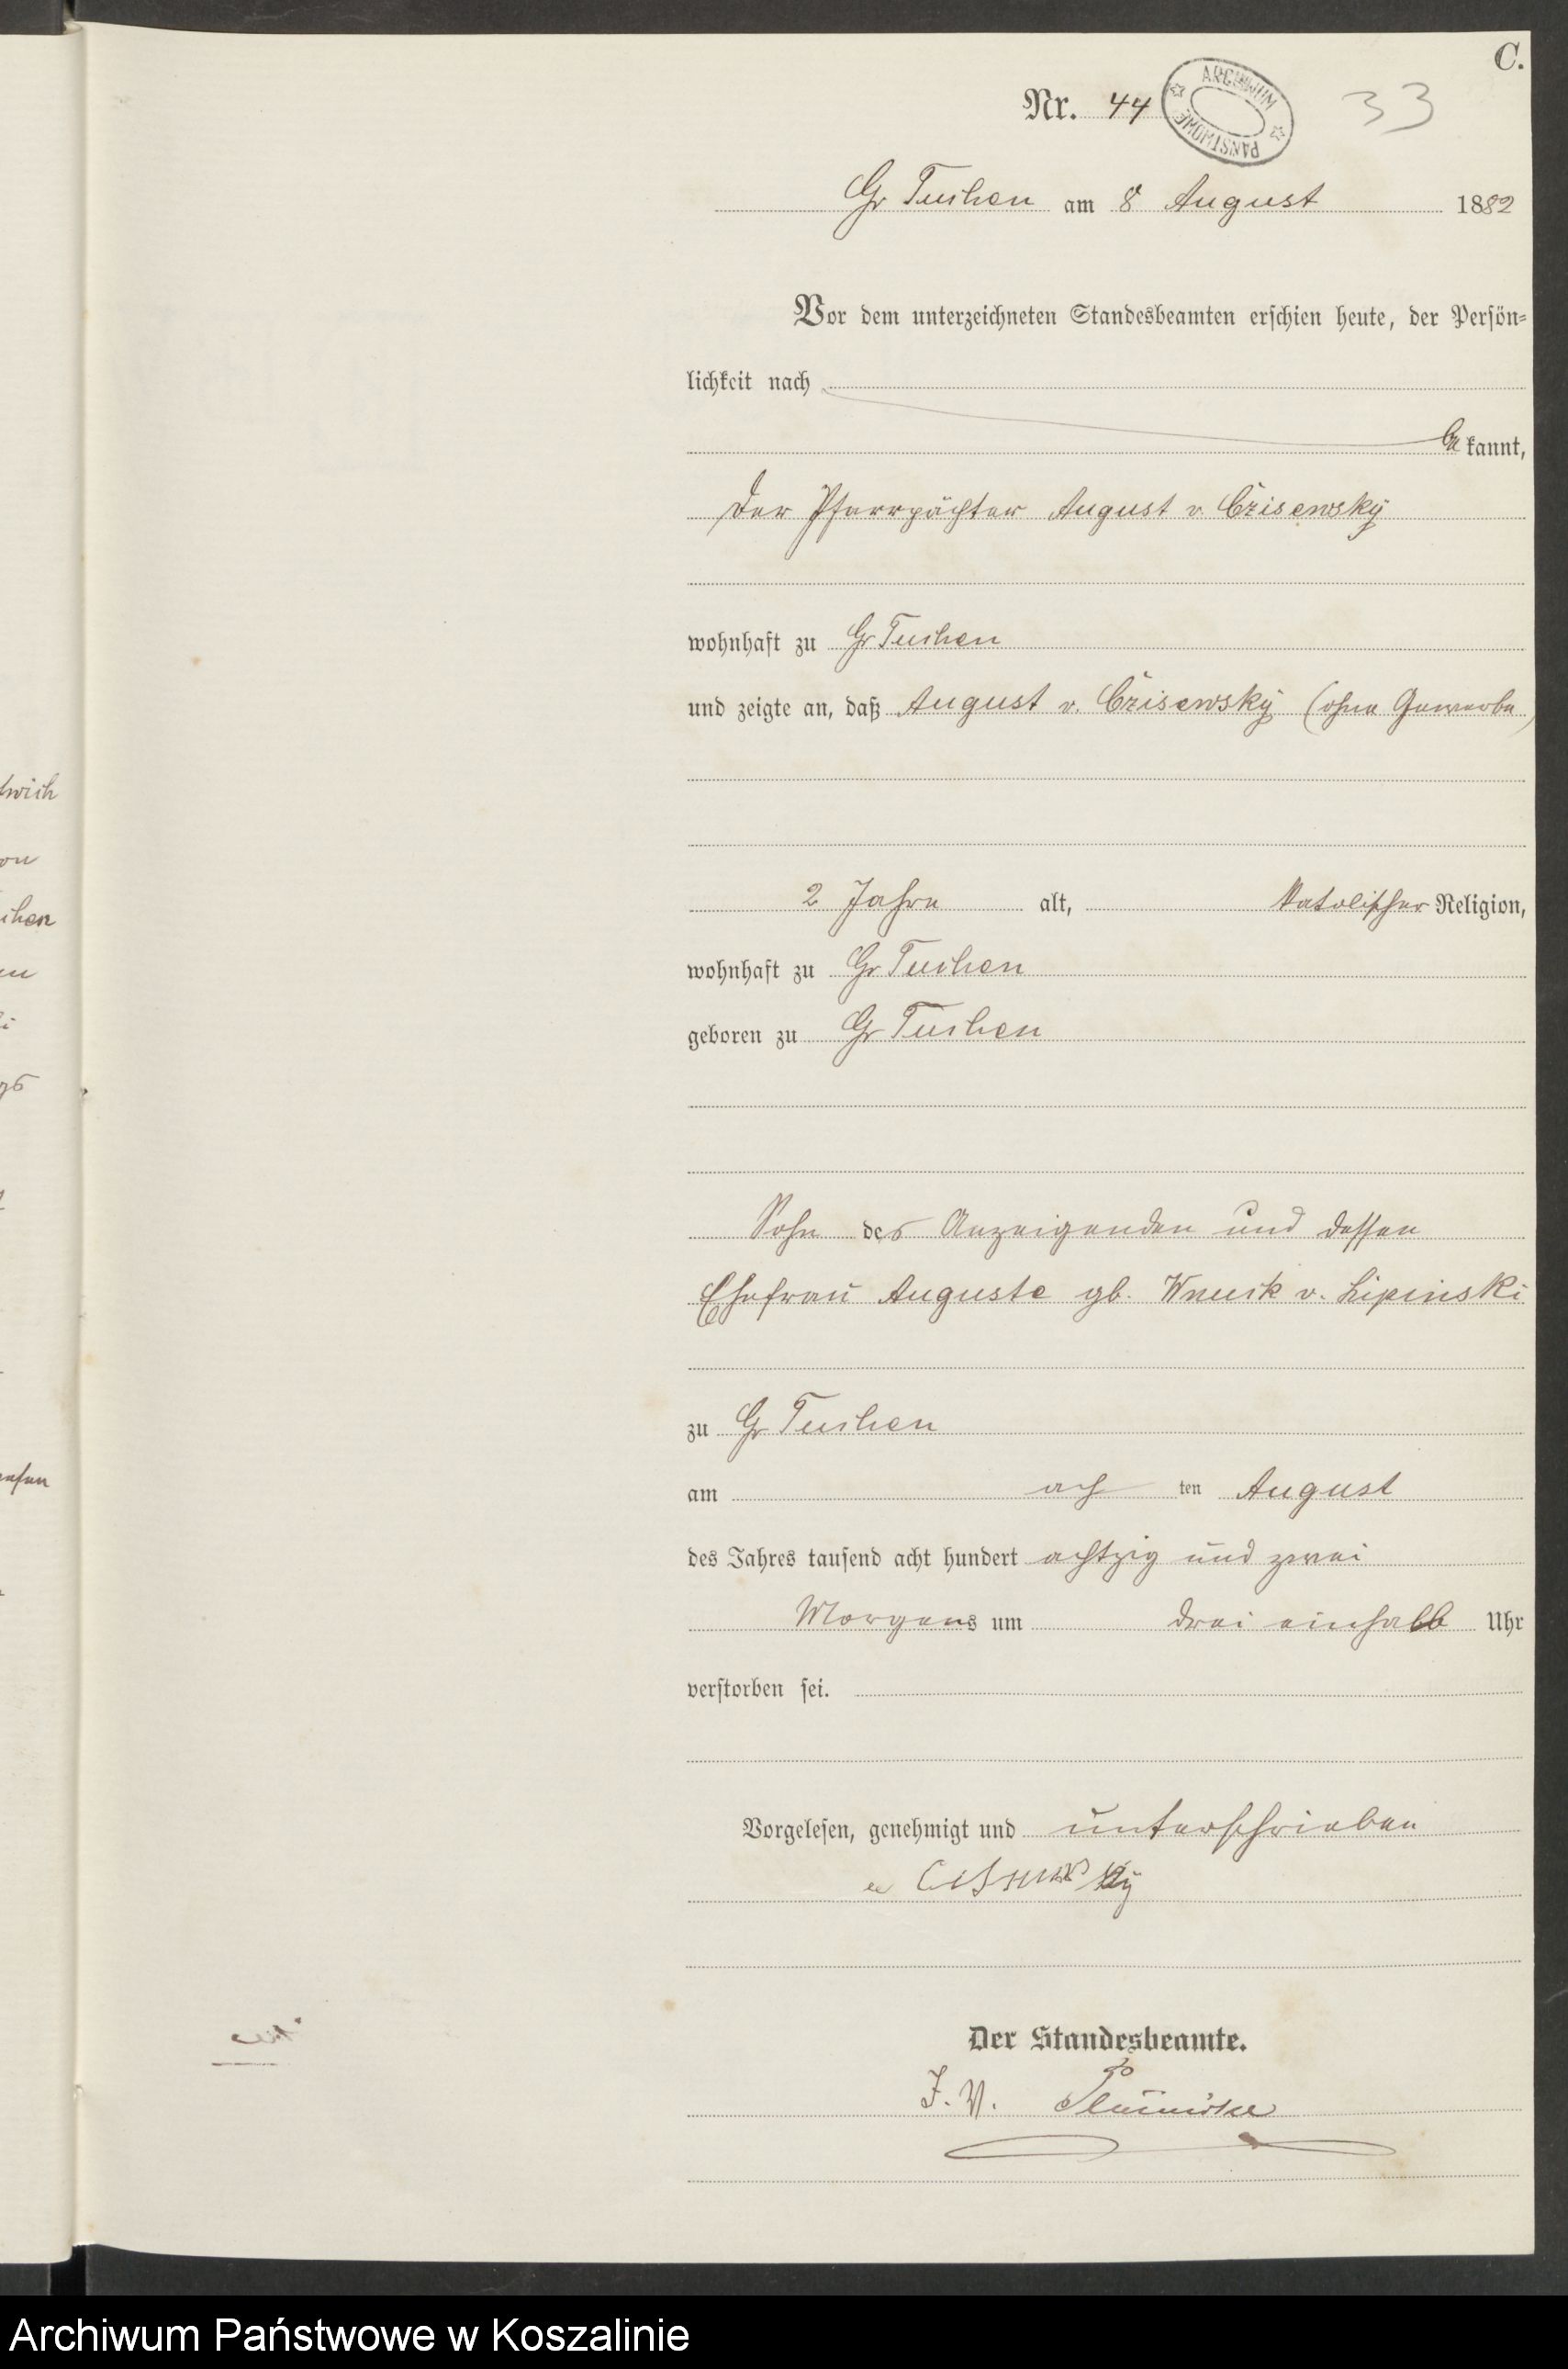 C.
Nr. 44
ARCHIWUM PAŃSTWOWE
33
Gr Tuchen am 8 August 1882
Vor dem unterzeichneten Standesbeamten erschien heute, der Persön-
lichkeit nach
be kannt,
der Pfarrpächter August v. Czisewsky
wohnhaft zu Gr Tuchen
und zeigte an, daß August v. Czisewsky (ohne Gewerbe)
2 Jahre alt, katolischer Religion,
wohnhaft zu Gr Tuchen
geboren zu Gr Tuchen
Sohn des Anzeigenden und dessen
Ehefrau Auguste gb. Wnuck v. Lipinski
zu Gr Tuchen
am ach ten August
des Jahres tausend acht hundert achtzig und zwei
Morgens um drei einhalb Uhr
verstorben sei.
Vorgelesen, genehmigt und unterschrieben
Der Standesbeamte.
J. V.
Archiwum Państwowe w Koszalinie